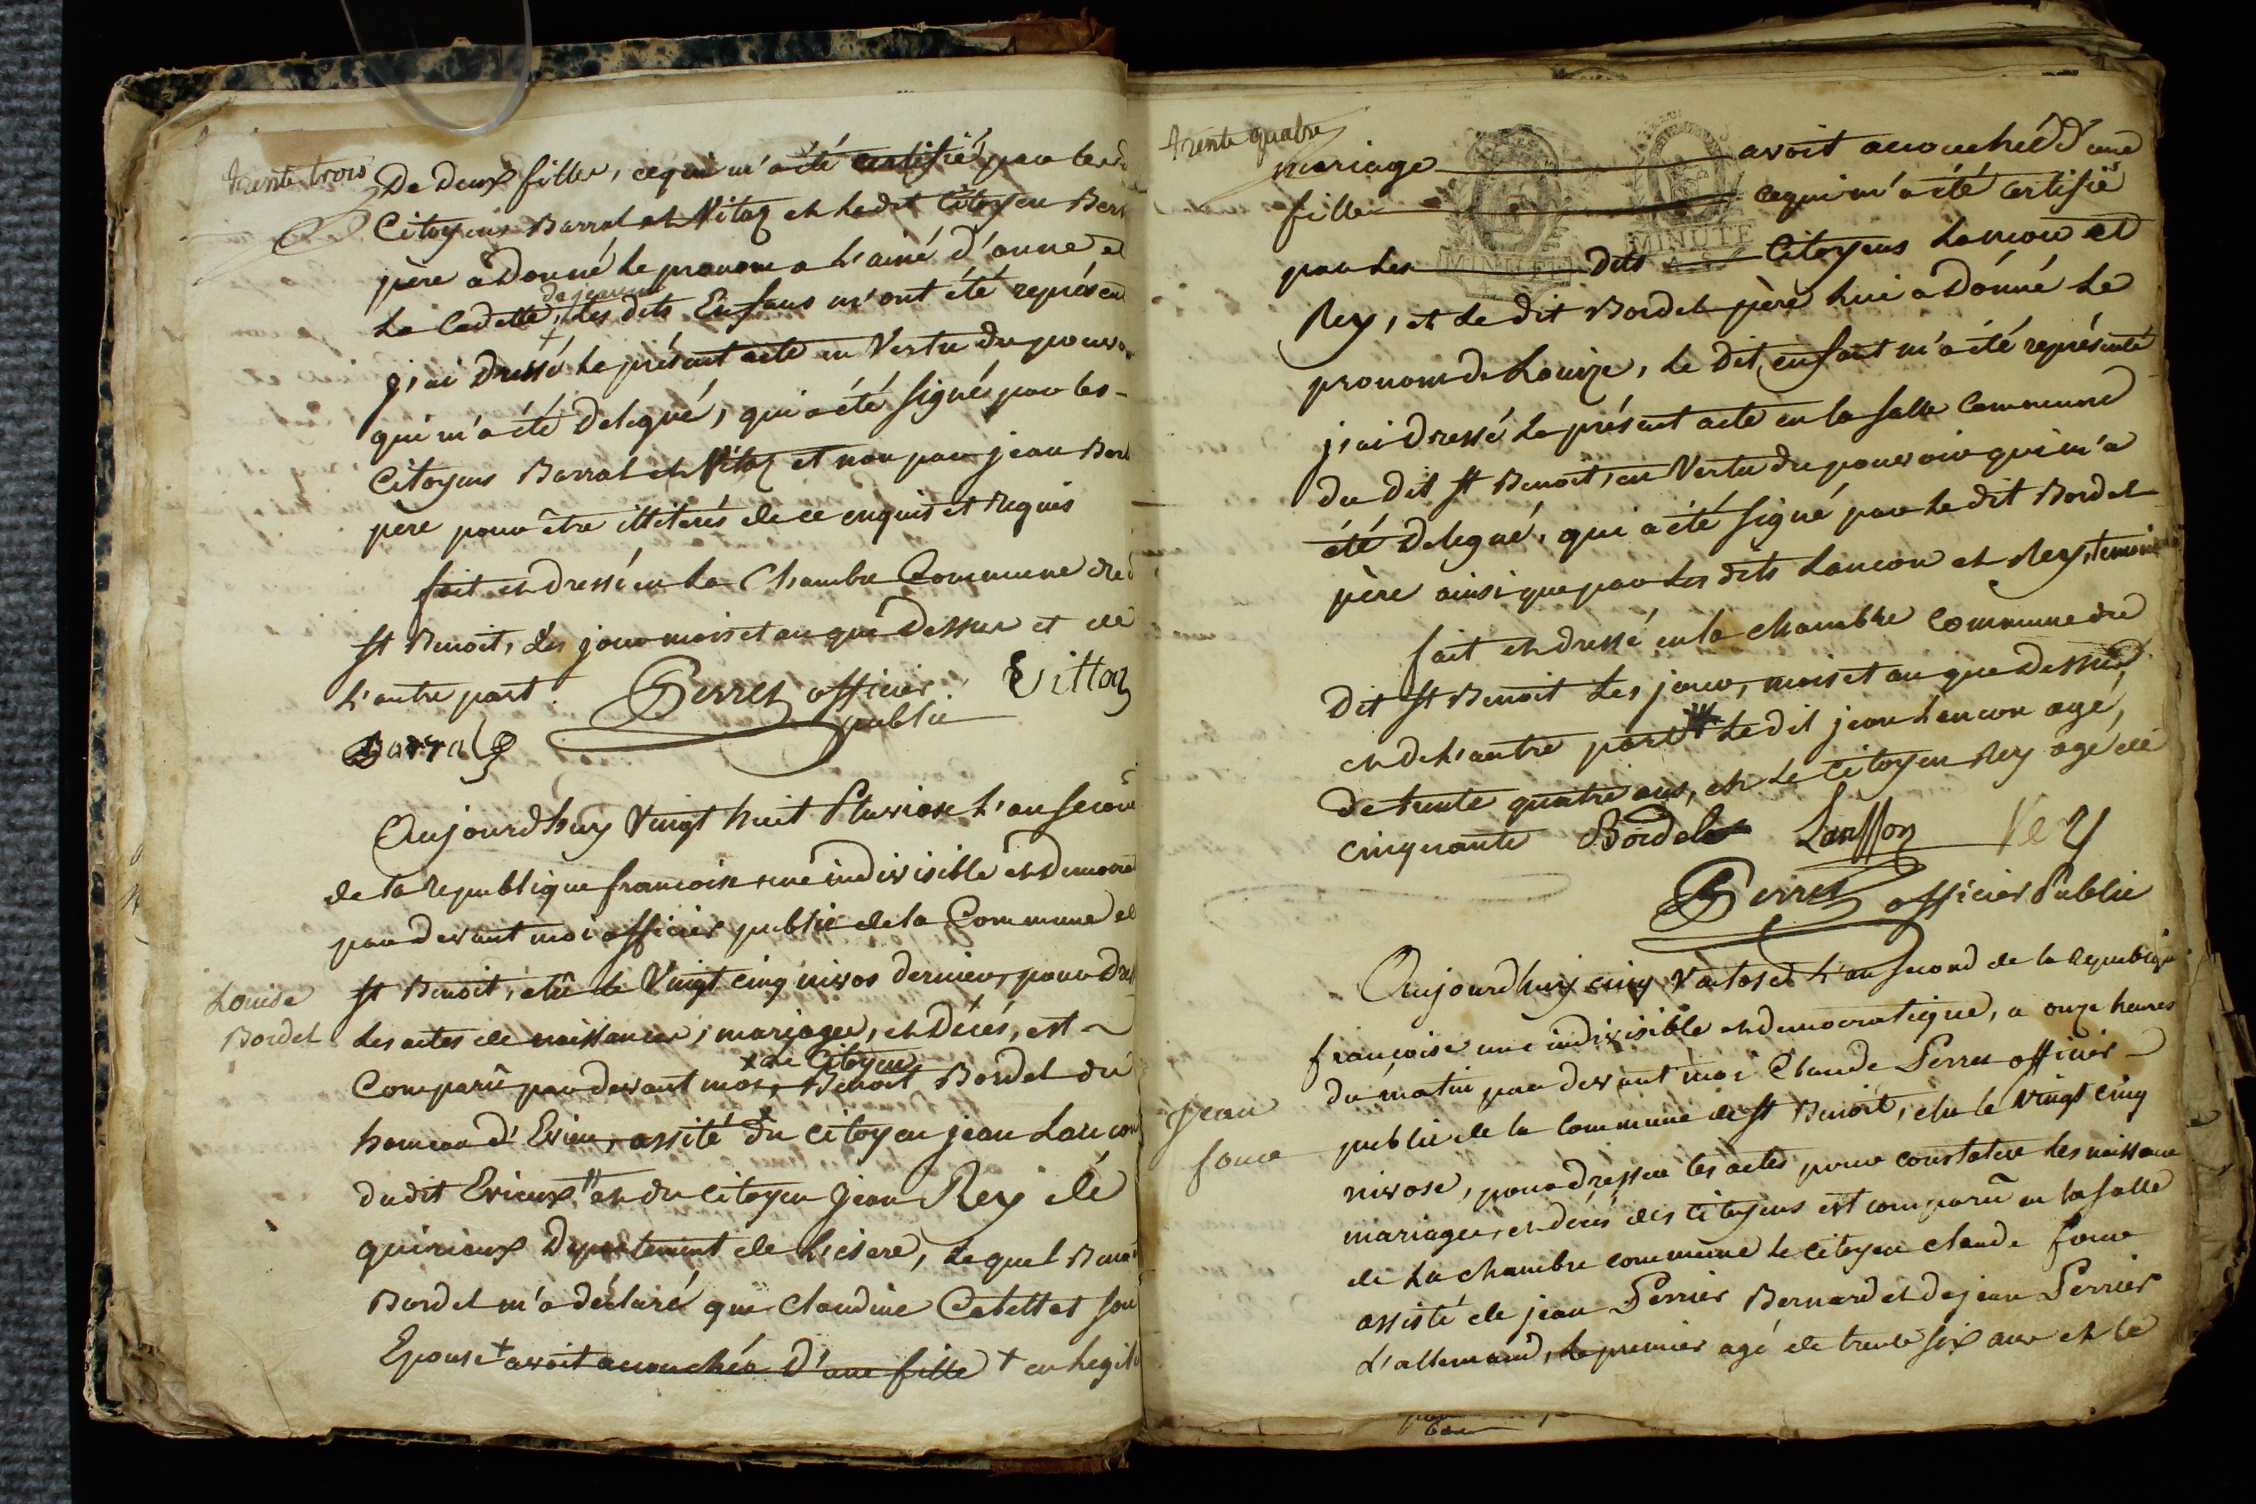 trente trois
De deux filles, ce qui m'a été certifié par les d
Citoyens Barral et Vitoz et le dit Citoyen
père a donné le pronom a l'ainé d'anne et
de jeanne
La Cadette, les dits Enfans m'ont été représen
j'ai dressé le présent acte en Vertu du pouvo
qui m'a été delegué, qui a été signé par les -
Citoyens Barral et Vitoz et non par jean
père pour être illeterés de ce enquis et requis
fait et dressé en la Chambre Commune du
St Benoit, les jour mois et an que dessus et de
l'autre part. Perret officier public Vittoz
Barral
Aujourd'huy Vingt huit Pluviose l'an secon
de la republique francoise une indivisible et democra
par devant moi officier public de la Commune de
Louise Bordel
St Benoit, elû le Vingt cinq nivos dernier, pour dres
les actes de naissances, mariages, et décés, est
x le Citoyen
Comparû par devant moi, Benoit Bordel du
hameau d'Evieu, assité du citoyen jean Lancon
dudit Evieux et du citoyen Jean Rey de
quirieux Departement de L'isere, lequel Benoi
Bordel m'a déclaré que Claudine Catettat son
Epouse + avoit accouchée d'une fille + en legit
trente quatre
mariage avoit accouchée d'une
fille ce qui m'a été certifié
MINUTE
MINUTE
par les dits Citoyens Lancon et
Rey, et le dit Bordel père lui a donné le
pronom de Louize, le dit enfant m'a été représenté
j'ai dressé le présent acte en la salle Commune
du dit St Benoit, en Vertu du pouvoir qui m'a
été delegué, qui a été signé par le dit Bordel
père ainsi que par les dits Lancon et Rey, temoins
fait et dressé en la chambre Commune du
dit St Benoit les jour, mois et an que dessus,
et de l'autre part le dit jean Lancon agé,
de trente quatre ans, et le Citoyen Rey agé de
cinquante Bordel Lansson Rey
Perret officier Public
Aujourd'huy cinq Vantose l'an second de la republiq
francoise une indivisible et democratique, a onze heures
du matin par devant moi Claude Perret officier
Jean
publie de la commune de St Benoit, elu le vingt cinq
nivose, pour dresser les actes pour constater les naissance
mariages, et décés des Citoyens est comparû en la salle
de La chambre commune le citoyen claude
assisté de jean Perrier Bernard et de jean Perrier
L'allemand, le premier agé de trente six ans et le